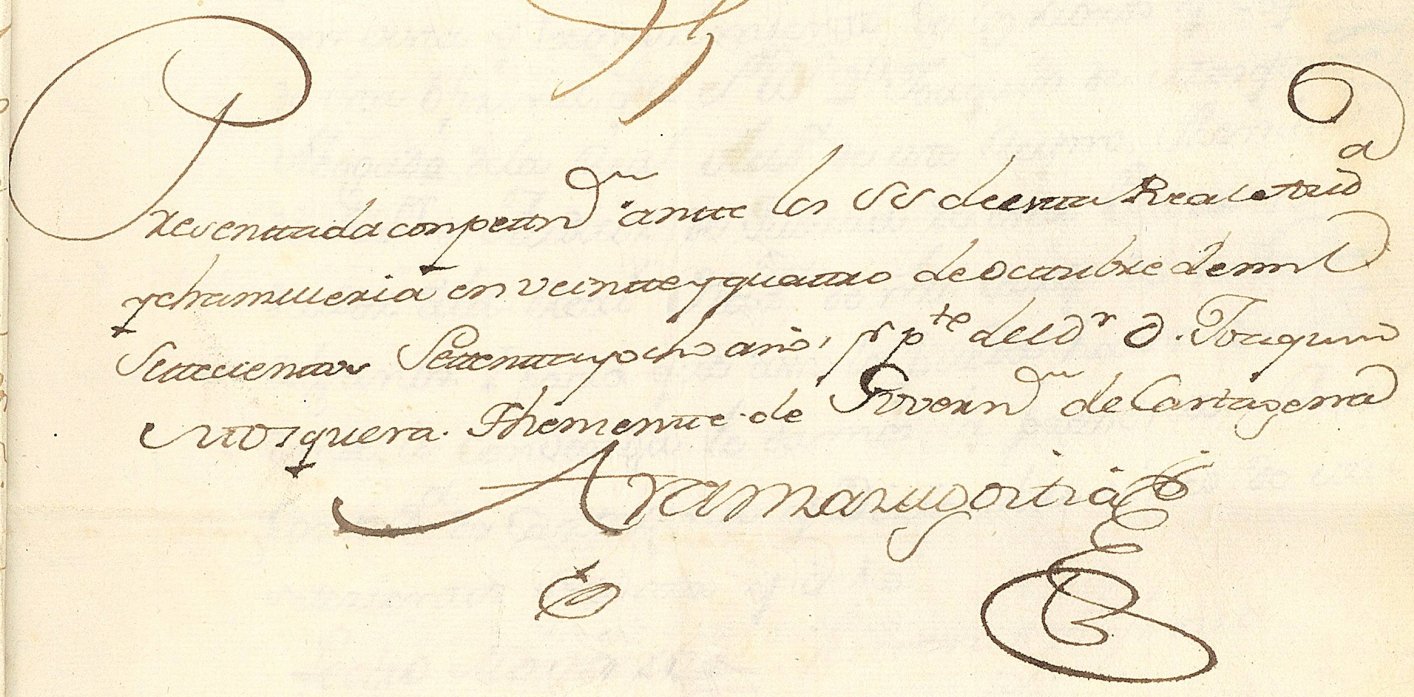 Presenttada con pettn.on antte los SS de esta Real Aud.a
y chanzilleria en veintte y quattro de Octtubre de mil
Settecienttos Settentta y ocho años, pr pte del Dr Dn. Joaquin
Mosquera. Thenientte de Governn.or de Cartagena
Aramazugoitia